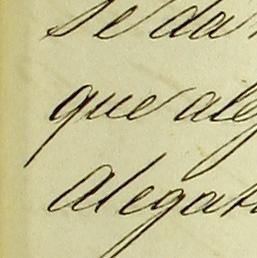 se da
que ale
alegat